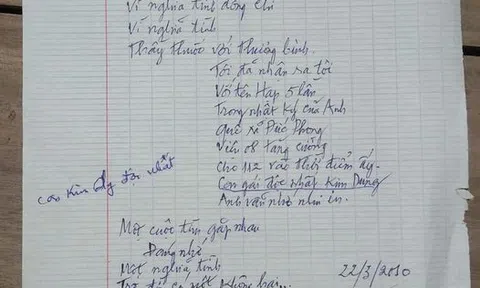 Vì nghĩa tình đồng chí
Vì nghĩa tình
Thầy thuốc với thương binh.
Tôi đã nhận ra tôi
Với tên Hạp 5 lần
Trong nhật ký của Anh
Quê xã Đức Phong
Viện 08 tăng cường
cho 112 vào thời điểm ấy.
Con gái độc nhất Kim Dung
Anh vẫn nhớ như in.
con Kim độc nhất
Một cuộc tìm gặp nhau
Đáng nhớ
Một nghĩa tình
22/3/2010